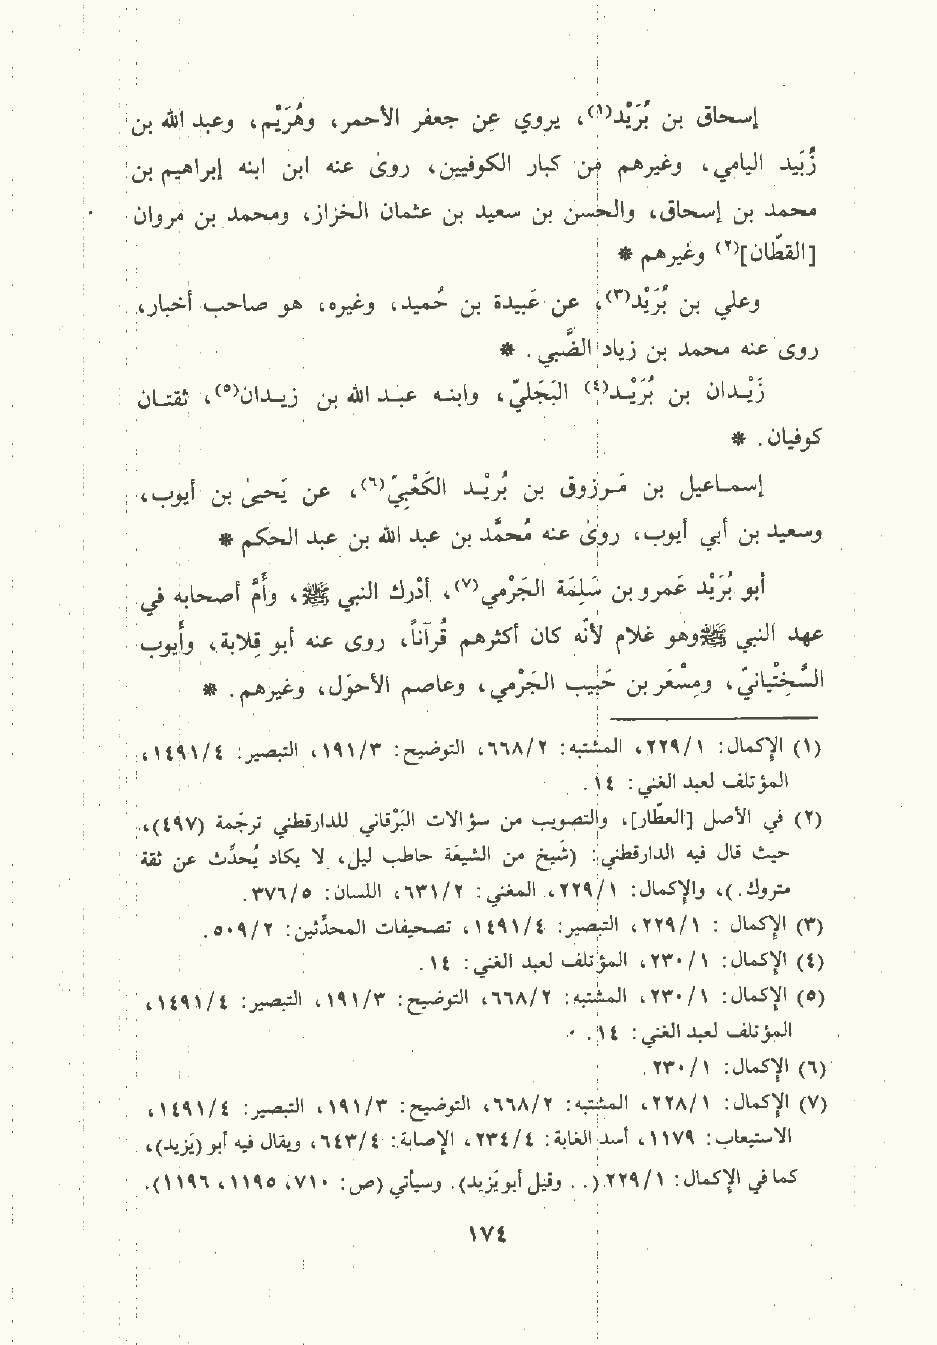 إسحاق بن بُرَيْد(١)، يروي عن جعفر الأحمر، وهُرَيْم، وعبد الله بن
زُبَيد اليامي، وغيرهم من كبار الكوفيين، روىٰ عنه ابن ابنه إبراهيم بن
محمد بن إسحاق، والحسن بن سعيد بن عثمان الخزاز، ومحمد بن مروان
[القطّان](٢) وغيرهم *
وعلي بن بُرَيْد(٣)، عن عَبيدة بن حُميد، وغيره، هو صاحب أخبار،
روى عنه محمد بن زياد الضَّبي. *
زَيْدان بن بُرَيْد(٤) البَجَليّ، وابنه عبد الله بن زيدان(٥)، ثقتان
كوفيان. *
إسماعيل بن مَرزوق بن بُريْد الكَعْبِيّ(٦)، عن يَحيىٰ بن أيوب،
وسعيد بن أبي أيوب، روىٰ عنه مُحمَّد بن عبد الله بن عبد الحكم *
أبو بُرَيْد عَمرو بن سَلِمَة الجَرْمي(٧)، أدْرك النبي ﷺ، وأَمَّ أصحابه في
عهد النبي ﷺ وهو غلام لأنّه كان أكثرهم قُرآناً، روى عنه أبو قِلابة، وأَيوب
السَّخِتْيانيّ، ومِسْعَر بن حَبيب الجَرْمي، وعاصم الأحوَل، وغيرهم. *
(١) الإكمال: ٢٢٩/١، المشتبه: ٦٦٨/٢، التوضيح: ١٩١/٣، التبصير: ١٤٩١/٤،
المؤتلف لعبد الغني: ١٤.
(٢) في الأصل [العطّار]، والتصويب من سؤالات البَرْقاني للدارقطني ترجَمة (٤٩٧)،
حيث قال فيه الدارقطني: (شَيخ من الشيعَة حاطب ليل، لا يكاد يُحدِّث عن ثقة
متروك.)، والإكمال: ٢٢٩/١، المغني: ٦٣١/٢، اللسان: ٣٧٦/٥.
(٣) الإكمال : ٢٢٩/١، التبصير: ١٤٩١/٤، تصحيفات المحدِّثين: ٥٠٩/٢.
(٤) الإكمال: ٢٣٠/١، المؤتلف لعبد الغني: ١٤.
(٥) الإكمال: ٢٣٠/١، المشتبه: ٦٦٨/٢، التوضيح: ١٩١/٣، التبصير: ١٤٩١/٤،
المؤتلف لعبد الغني: ١٤.
(٦) الإكمال: ٢٣٠/١.
(٧) الإكمال: ٢٢٨/١، المشتبه: ٦٦٨/٢، التوضيح: ١٩١/٣، التبصير: ١٤٩١/٤،
الاستيعاب: ١١٧٩، أسد الغابة: ٢٣٤/٤، الإصابة: ٦٤٣/٤، ويقال فيه أبو (يَزيد)،
كما في الإكمال: ٢٢٩/١.(. . وقيل أبو يَزيد). وسيأتي (ص: ٧١٠، ١١٩٥، ١١٩٦).
١٧٤